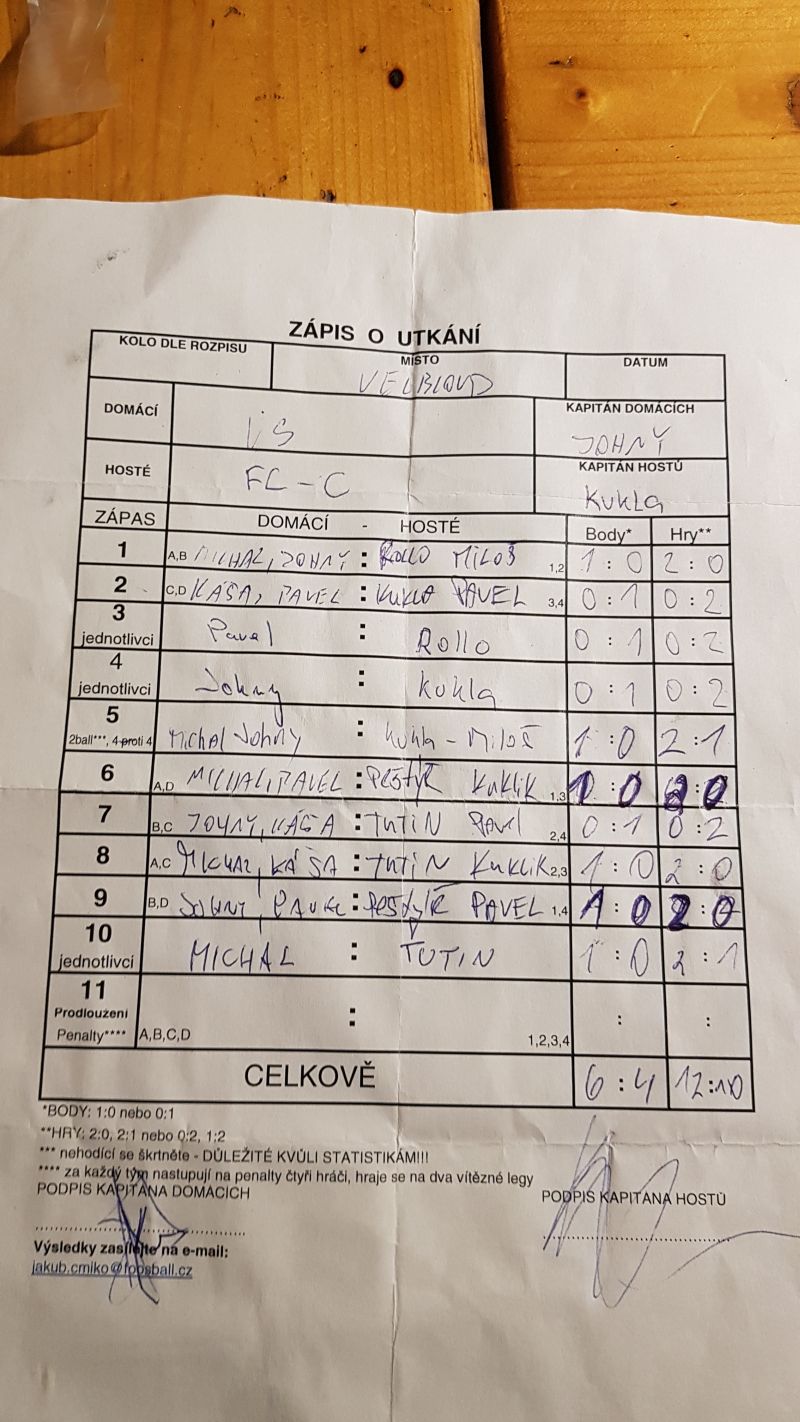 ZÁPIS O UTKÁNÍ
KOLO DLE ROZPISU MÍSTO DATUM
VELBLOUD
DOMÁCÍ KAPITÁN DOMÁCÍCH
JOHNY
HOSTÉ FC-C KAPITÁN HOSTŮ
KUKLA
ZÁPAS DOMÁCÍ - HOSTÉ Body* Hry**
1 A,B MICHAL, JOHNY : ROLLO MILOŠ 1,2 1 : 0 2 : 0
2 C,D KÁŠA, PAVEL : KUKLA PAVEL 3,4 0 : 1 0 : 2
3 jednotlivci Pavel : Rollo 0 : 1 0 : 2
4 jednotlivci Johny : Kukla 0 : 1 0 : 2
5 2ball***, 4 proti 4 Michal Johny : Kukla - Miloš 1 : 0 2 : 1
6 A,D MICHAL, PAVEL : PESTYŘ KUKLIK 1,3 1 : 0 2 : 0
7 B,C JOHNY, KÁŠA : TUTIN PAVEL 2,4 0 : 1 0 : 2
8 A,C MICHAL, KÁŠA : TUTIN KUKLIK 2,3 1 : 0 2 : 0
9 B,D JOHNY, PAVEL : PESTYŘ PAVEL 1,4 1 : 0 2 : 0
10 jednotlivci MICHAL : TUTIN 1 : 0 2 : 1
11 Prodloužení : : :
Penalty**** A,B,C,D 1,2,3,4
CELKOVĚ 6 : 4 12:10
*BODY: 1:0 nebo 0:1
**HRY: 2:0, 2:1 nebo 0:2, 1:2
*** nehodící se škrtněte - DŮLEŽITÉ KVŮLI STATISTIKÁM!!!
**** za každý tým nastupují na penalty čtyři hráči, hraje se na dva vítězné legy
PODPIS KAPITÁNA DOMÁCÍCH PODPIS KAPITÁNA HOSTŮ
Výsledky zasílejte na e-mail:
jakub.cmiko@foosball.cz